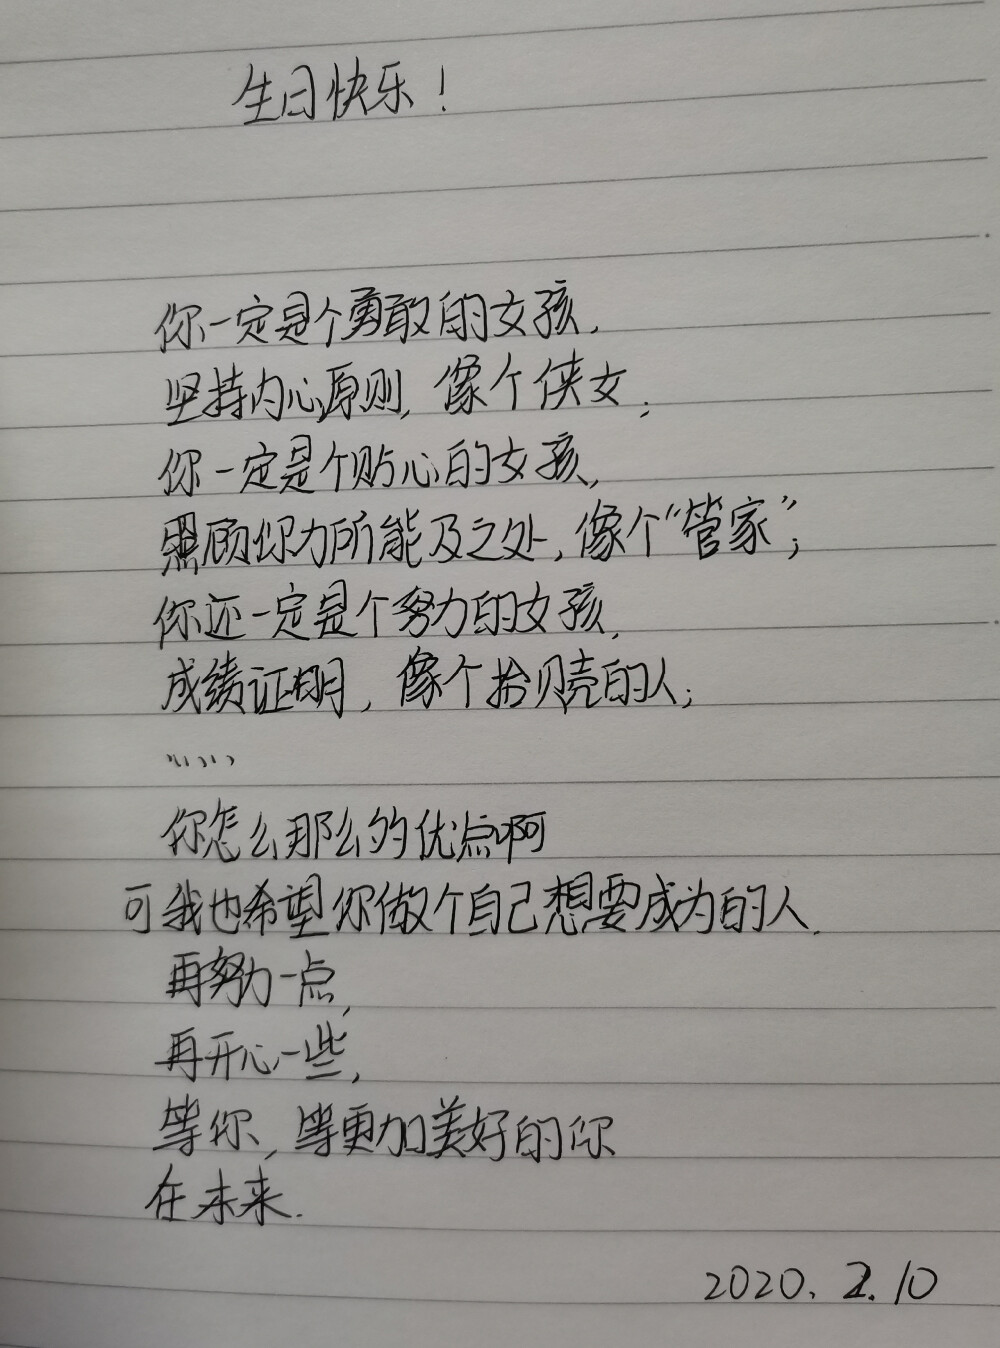 生日快乐！
你一定是个勇敢的女孩，
坚持内心原则，像个侠女；
你一定是个贴心的女孩，
照顾你力所能及之处，像个“管家”；
你还一定是个努力的女孩，
成绩证明，像个拾贝壳的人；
……
你怎么那么的优点啊
可我也希望你做个自己想要成为的人．
再努力一点，
再开心一些，
等你，等更加美好的你
在未来．
2020．2．10